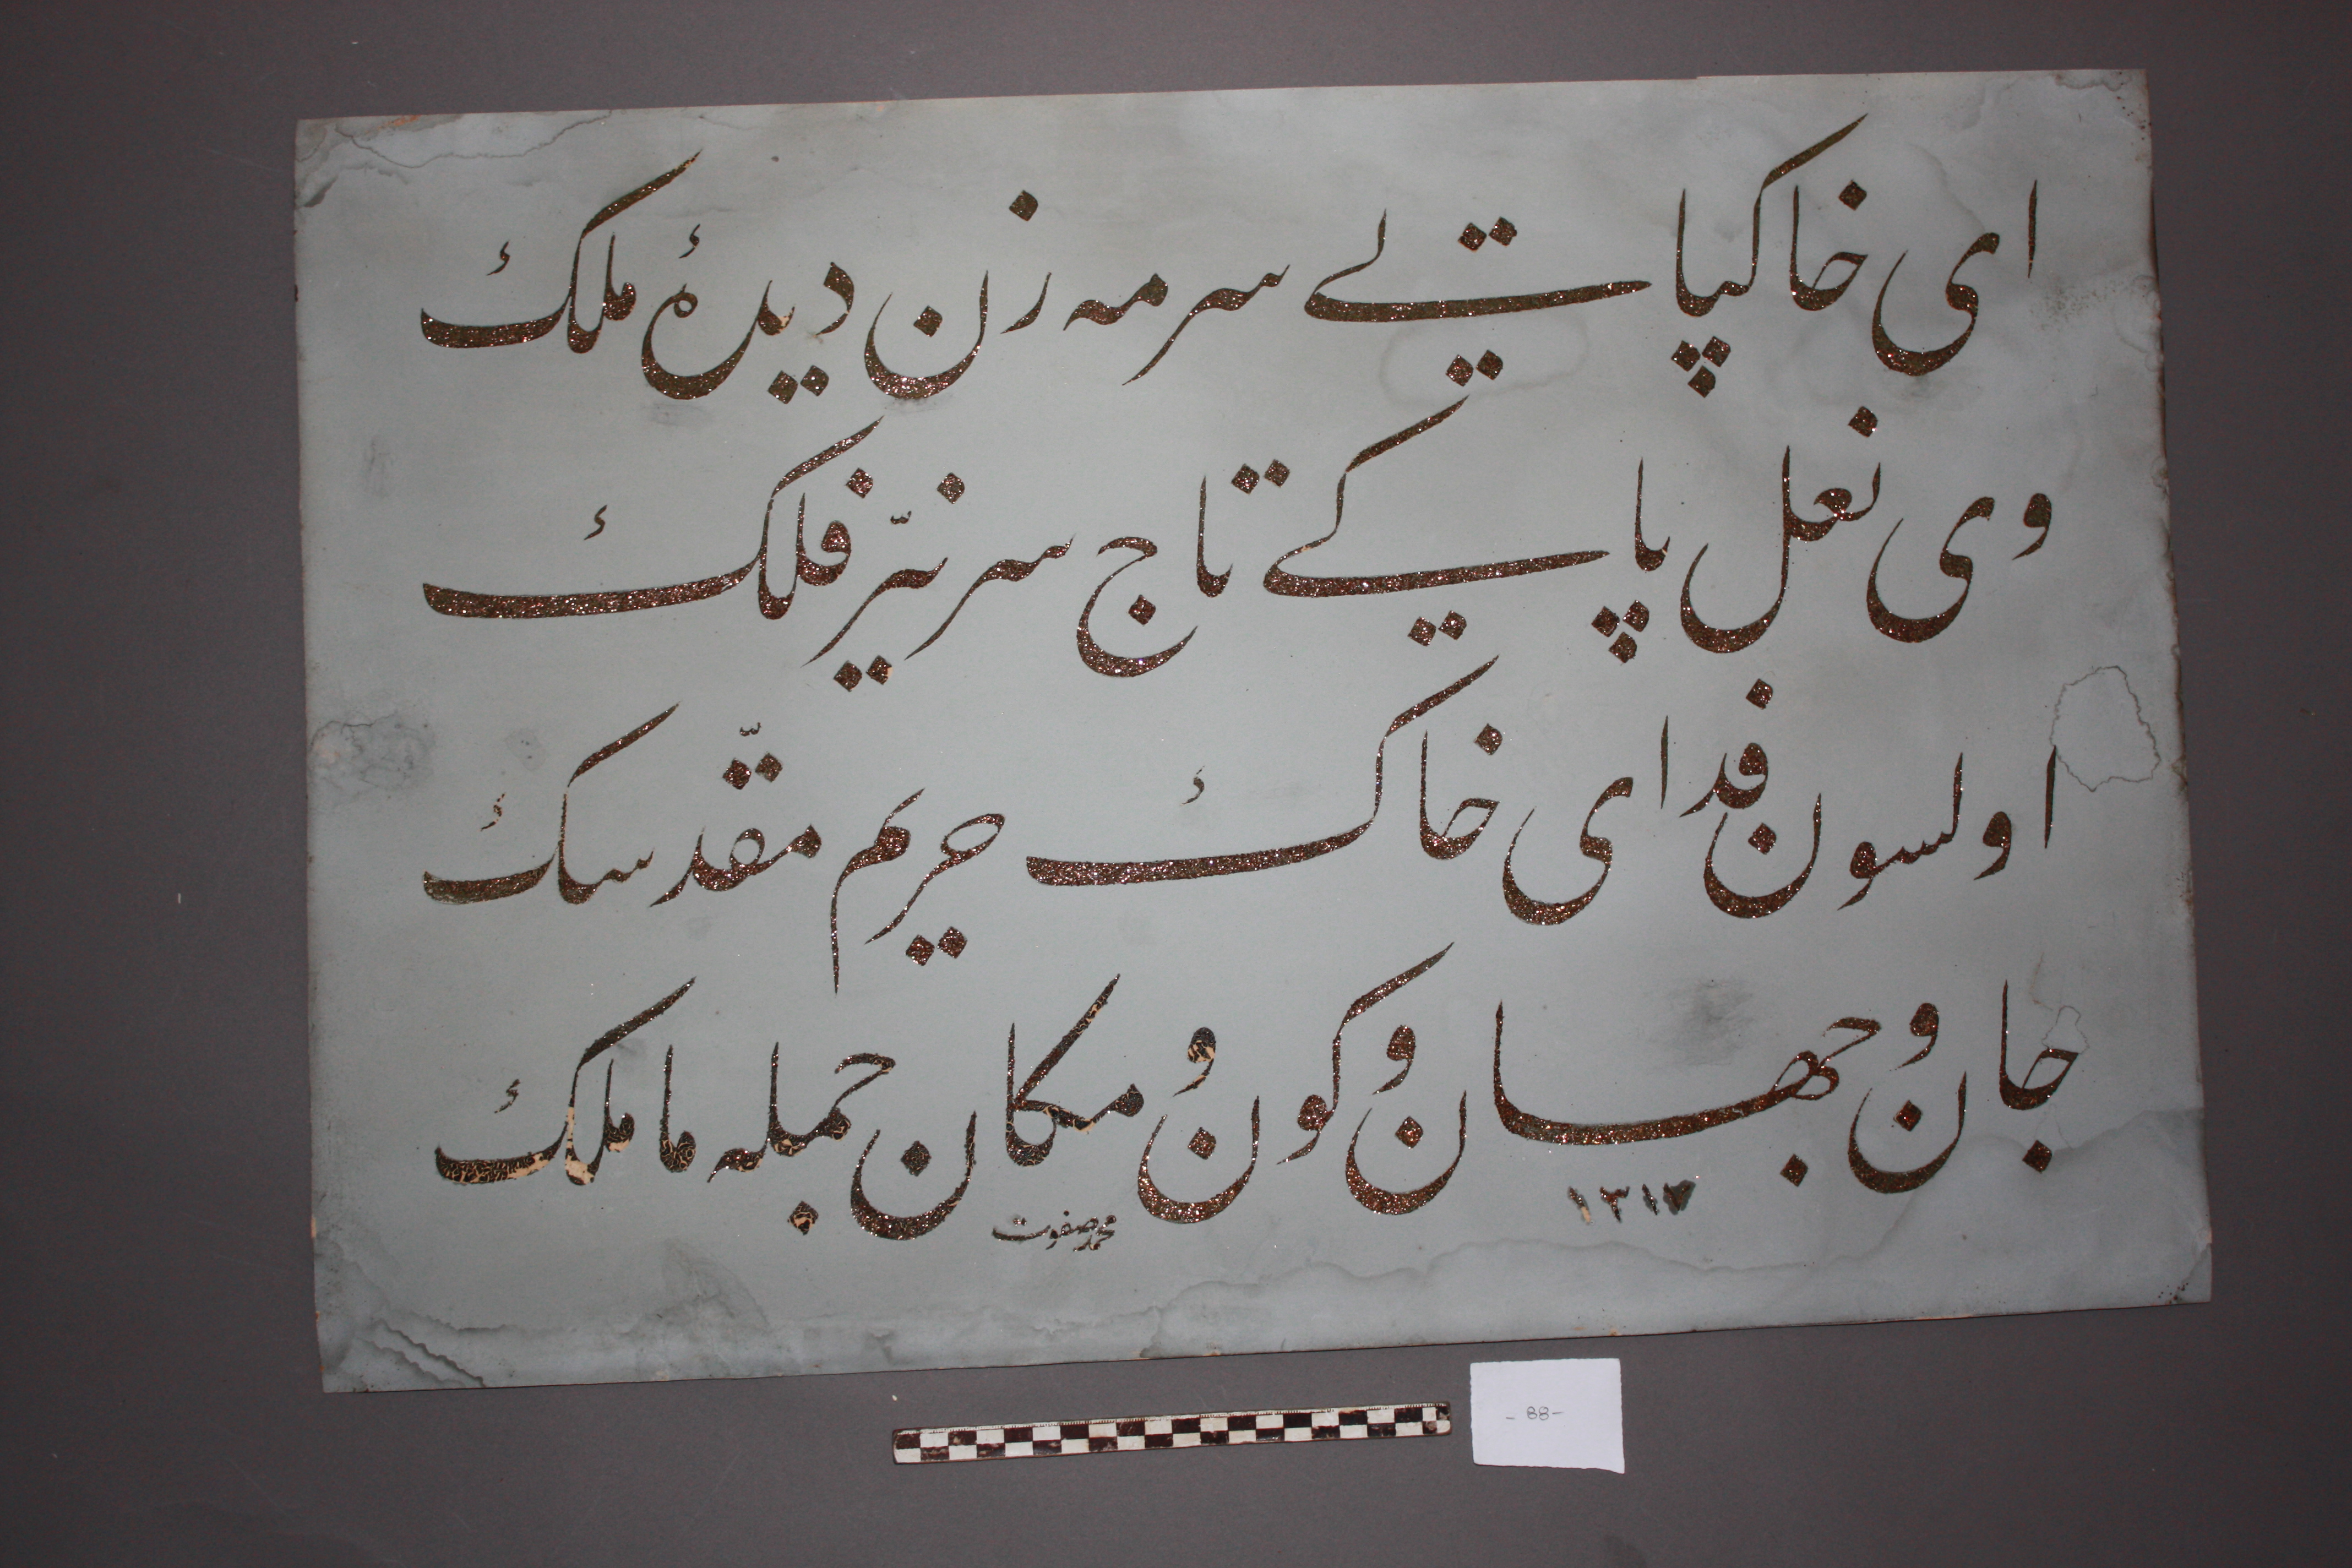 ای خاکپاتی سرمه زن دیدهٔ ملك
وی نعل پایکی تاج سر نیّر فلك
اولسون فدای خاك حریم مقدّسك
جان و جهان و کون و مکان جمله ما ملك
۱۳۱۷
محمد صفوت
-88-